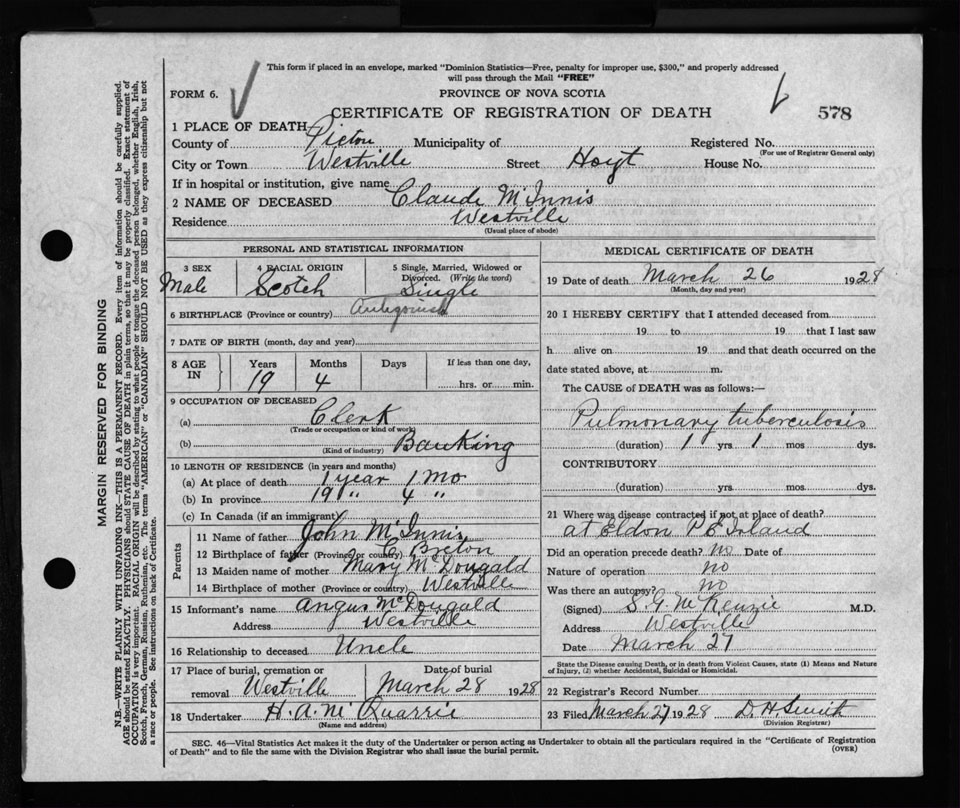 This form if placed in an envelope, marked "Dominion Statistics—Free, penalty for improper use, $300," and properly addressed
will pass through the Mail "FREE"
FORM 6.
PROVINCE OF NOVA SCOTIA
CERTIFICATE OF REGISTRATION OF DEATH
578
1 PLACE OF DEATH
County of Pictou Municipality of Registered No.
(For use of Registrar General only)
City or Town Westville Street Hoyt House No.
If in hospital or institution, give name
2 NAME OF DECEASED Claude McInnis
Residence Westville
(Usual place of abode)
PERSONAL AND STATISTICAL INFORMATION
3 SEX 4 RACIAL ORIGIN 5 Single, Married, Widowed or
Divorced. (Write the word)
Male Scotch Single
6 BIRTHPLACE (Province or country) Antigonish
7 DATE OF BIRTH (month, day and year)
8 AGE IN Years Months Days If less than one day,
19 4 hrs. or min.
9 OCCUPATION OF DECEASED
(a) Clerk
(Trade or occupation or kind of work)
(b) Banking
(Kind of industry)
10 LENGTH OF RESIDENCE (in years and months)
(a) At place of death 1 year 1 Mo
(b) In province 19 " 4 "
(c) In Canada (if an immigrant)
Parents
11 Name of father John McInnis
12 Birthplace of father (Province or country) C Breton
13 Maiden name of mother Mary McDougald
14 Birthplace of mother (Province or country) Westville
15 Informant's name Angus McDougald
Address Westville
16 Relationship to deceased Uncle
17 Place of burial, cremation or Date of burial
removal Westville March 28 1928
18 Undertaker H. A. McQuarrie
(Name and address)
MEDICAL CERTIFICATE OF DEATH
19 Date of death March 26 1928
(Month, day and year)
20 I HEREBY CERTIFY that I attended deceased from
19 to 19 that I last saw
h alive on 19 and that death occurred on the
date stated above, at m.
The CAUSE of DEATH was as follows:—
Pulmonary tuberculosis
(duration) 1 yrs 1 mos dys.
CONTRIBUTORY
(duration) yrs. mos. dys.
21 Where was disease contracted if not at place of death?
at Eldon P E Island
Did an operation precede death? No Date of
Nature of operation no
Was there an autopsy? no
(Signed) S. G. McKenzie M.D.
Address Westville
Date March 27
State the Disease causing Death, or in death from Violent Causes, state (1) Means and Nature
of Injury, (2) whether Accidental, Suicidal or Homicidal.
22 Registrar's Record Number
23 Filed March 27 1928 D. H. Smith
(Division Registrar)
SEC. 46—Vital Statistics Act makes it the duty of the Undertaker or person acting as Undertaker to obtain all the particulars required in the "Certificate of Registration
of Death" and to file the same with the Division Registrar who shall issue the burial permit.
(OVER)
MARGIN RESERVED FOR BINDING
N.B.—WRITE PLAINLY WITH UNFADING INK—THIS IS A PERMANENT RECORD. Every item of information should be carefully supplied.
AGE should be stated EXACTLY. PHYSICIANS should STATE CAUSE OF DEATH in plain terms, so that it may be properly classified. Exact statement of
OCCUPATION is very important. RACIAL ORIGIN will be described by stating to what people or tongue the deceased person belonged, whether English, Irish,
Scotch, French, German, Russian, Ruthenian, etc. The terms "AMERICAN" or "CANADIAN" SHOULD NOT BE USED as they express citizenship but not
a race or people. See instructions on back of Certificate.